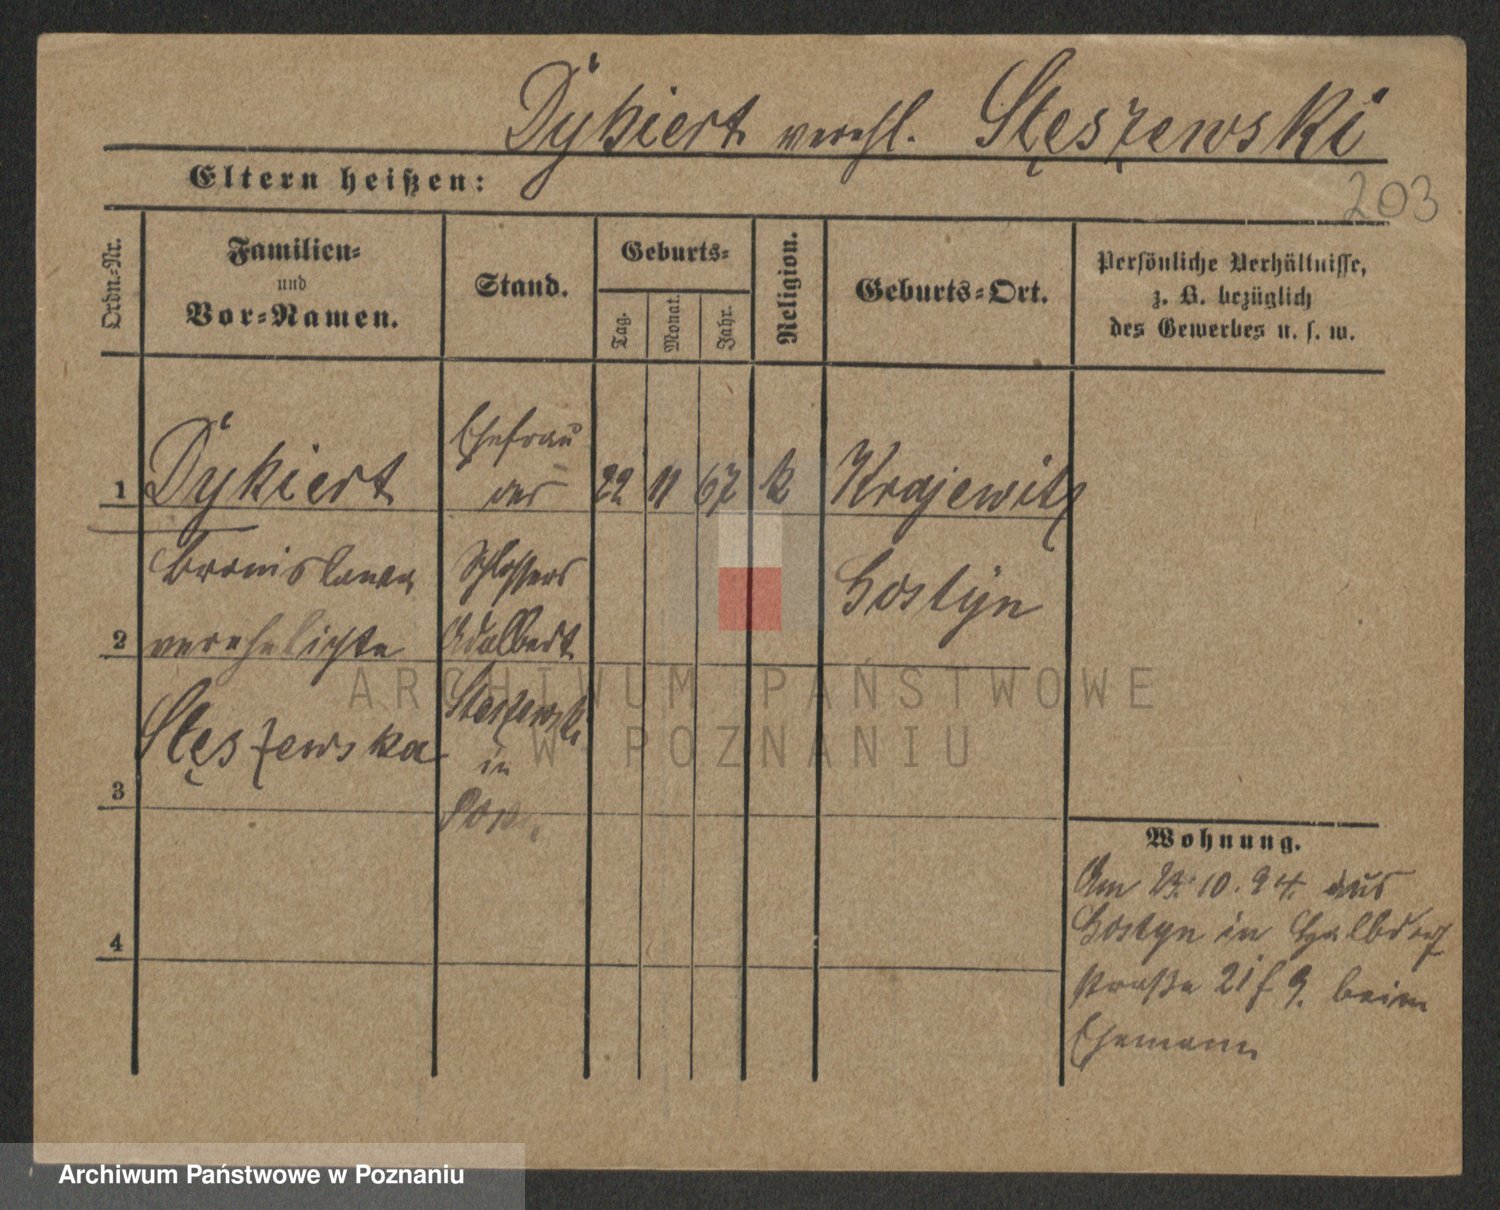 Dykiert verehl. Stęszewski
Eltern heißen:
203
Ordn.-Nr.
Familien-
und
Vor-Namen.
Stand.
Geburts-
Tag.
Monat.
Jahr.
Religion.
Geburts-Ort.
Persönliche Verhältnisse,
z. B. bezüglich
des Gewerbes u. s. w.
1
Dykiert
Ehefrau
des
22
11
67
k
Krajewitz
Bronislawa
Schlossers
Gostyn
2
verehelichte
Adalbert
Stęszewska
Stęszewski
in
3
Posen
4
Wohnung.
Am 23. 10. 94. aus
Gostyn in Halbdorf
straße 21 f 9. beim
Ehemann
ARCHIWUM PAŃSTWOWE
W POZNANIU
Archiwum Państwowe w Poznaniu